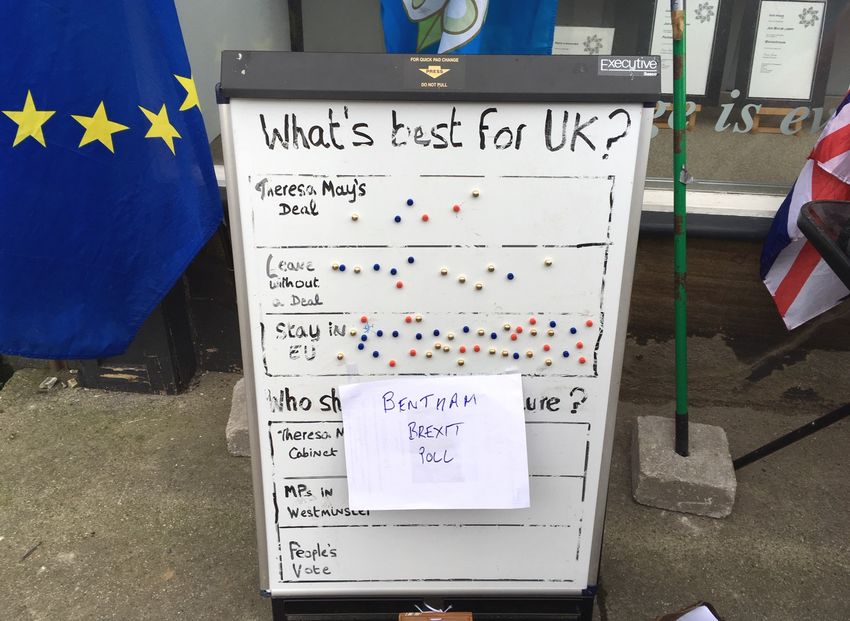 FOR QUICK PAD CHANGE
PRESS
DO NOT PULL
Executive
What's best for UK?
Theresa May's
Deal
Leave
without
a Deal
Stay in
EU
Who sh
ure?
BENTHAM
BREXIT
POLL
Theresa M
Cabinet
MPs in
Westminster
People's
Vote
ge is ev